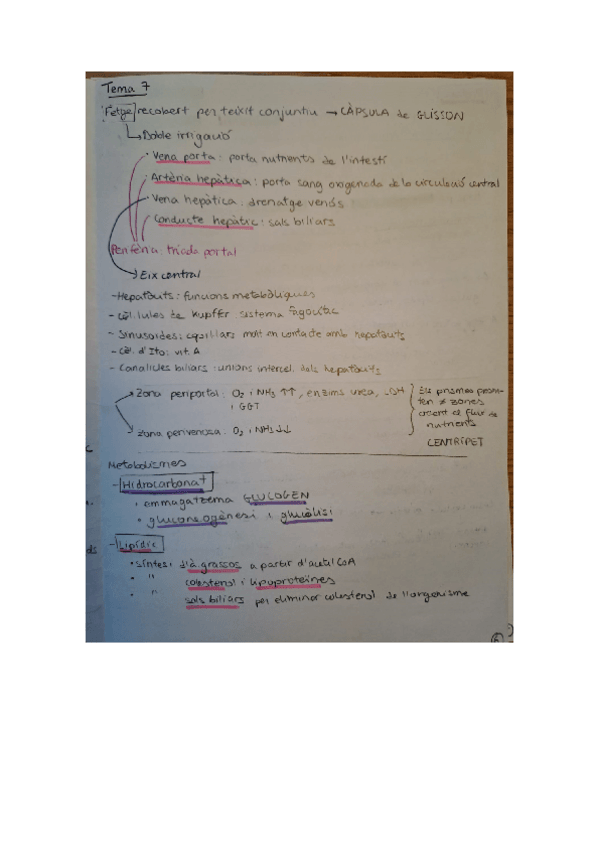 Tema 7
Fetge recobert per teixit conjuntiu → CÀPSULA de GLISSON
↳ Doble irrigació
· Vena porta: porta nutrients de l'intestí
· Artèria hepàtica: porta sang oxigenada de la circulació central
· Vena hepàtica: drenatge venós
· Conducte hepàtic: sals biliars
Perifèria: triada portal
→ Eix central
- Hepatòcits: funcions metabòliques
- Cèl·lules de Kupffer sistema fagocític
- Sinusoides: capil·lars molt en contacte amb hepatòcits
- Cèl. d'Ito: vit. A
- Canalicles biliars: unions intercel. dels hepatòcits
→ Zona periportal: O2 i NH3 ↑↑, enzims urea, LDH
i GGT
→ Zona perivenosa: O2 i NH3 ↓↓
Els prismes presen-
ten ≠ zones
atent al flux de
nutrients
CENTRÍPET
Metabolismes
- Hidrocarbonat
· emmagatzema GLUCOGEN
· gluconeogènesi i glucòlisi
- Lipídic
· síntesi d'à.grassos a partir d'acetil CoA
· " colesterol i lipoproteïnes
· " sals biliars per eliminar colesterol de l'organisme